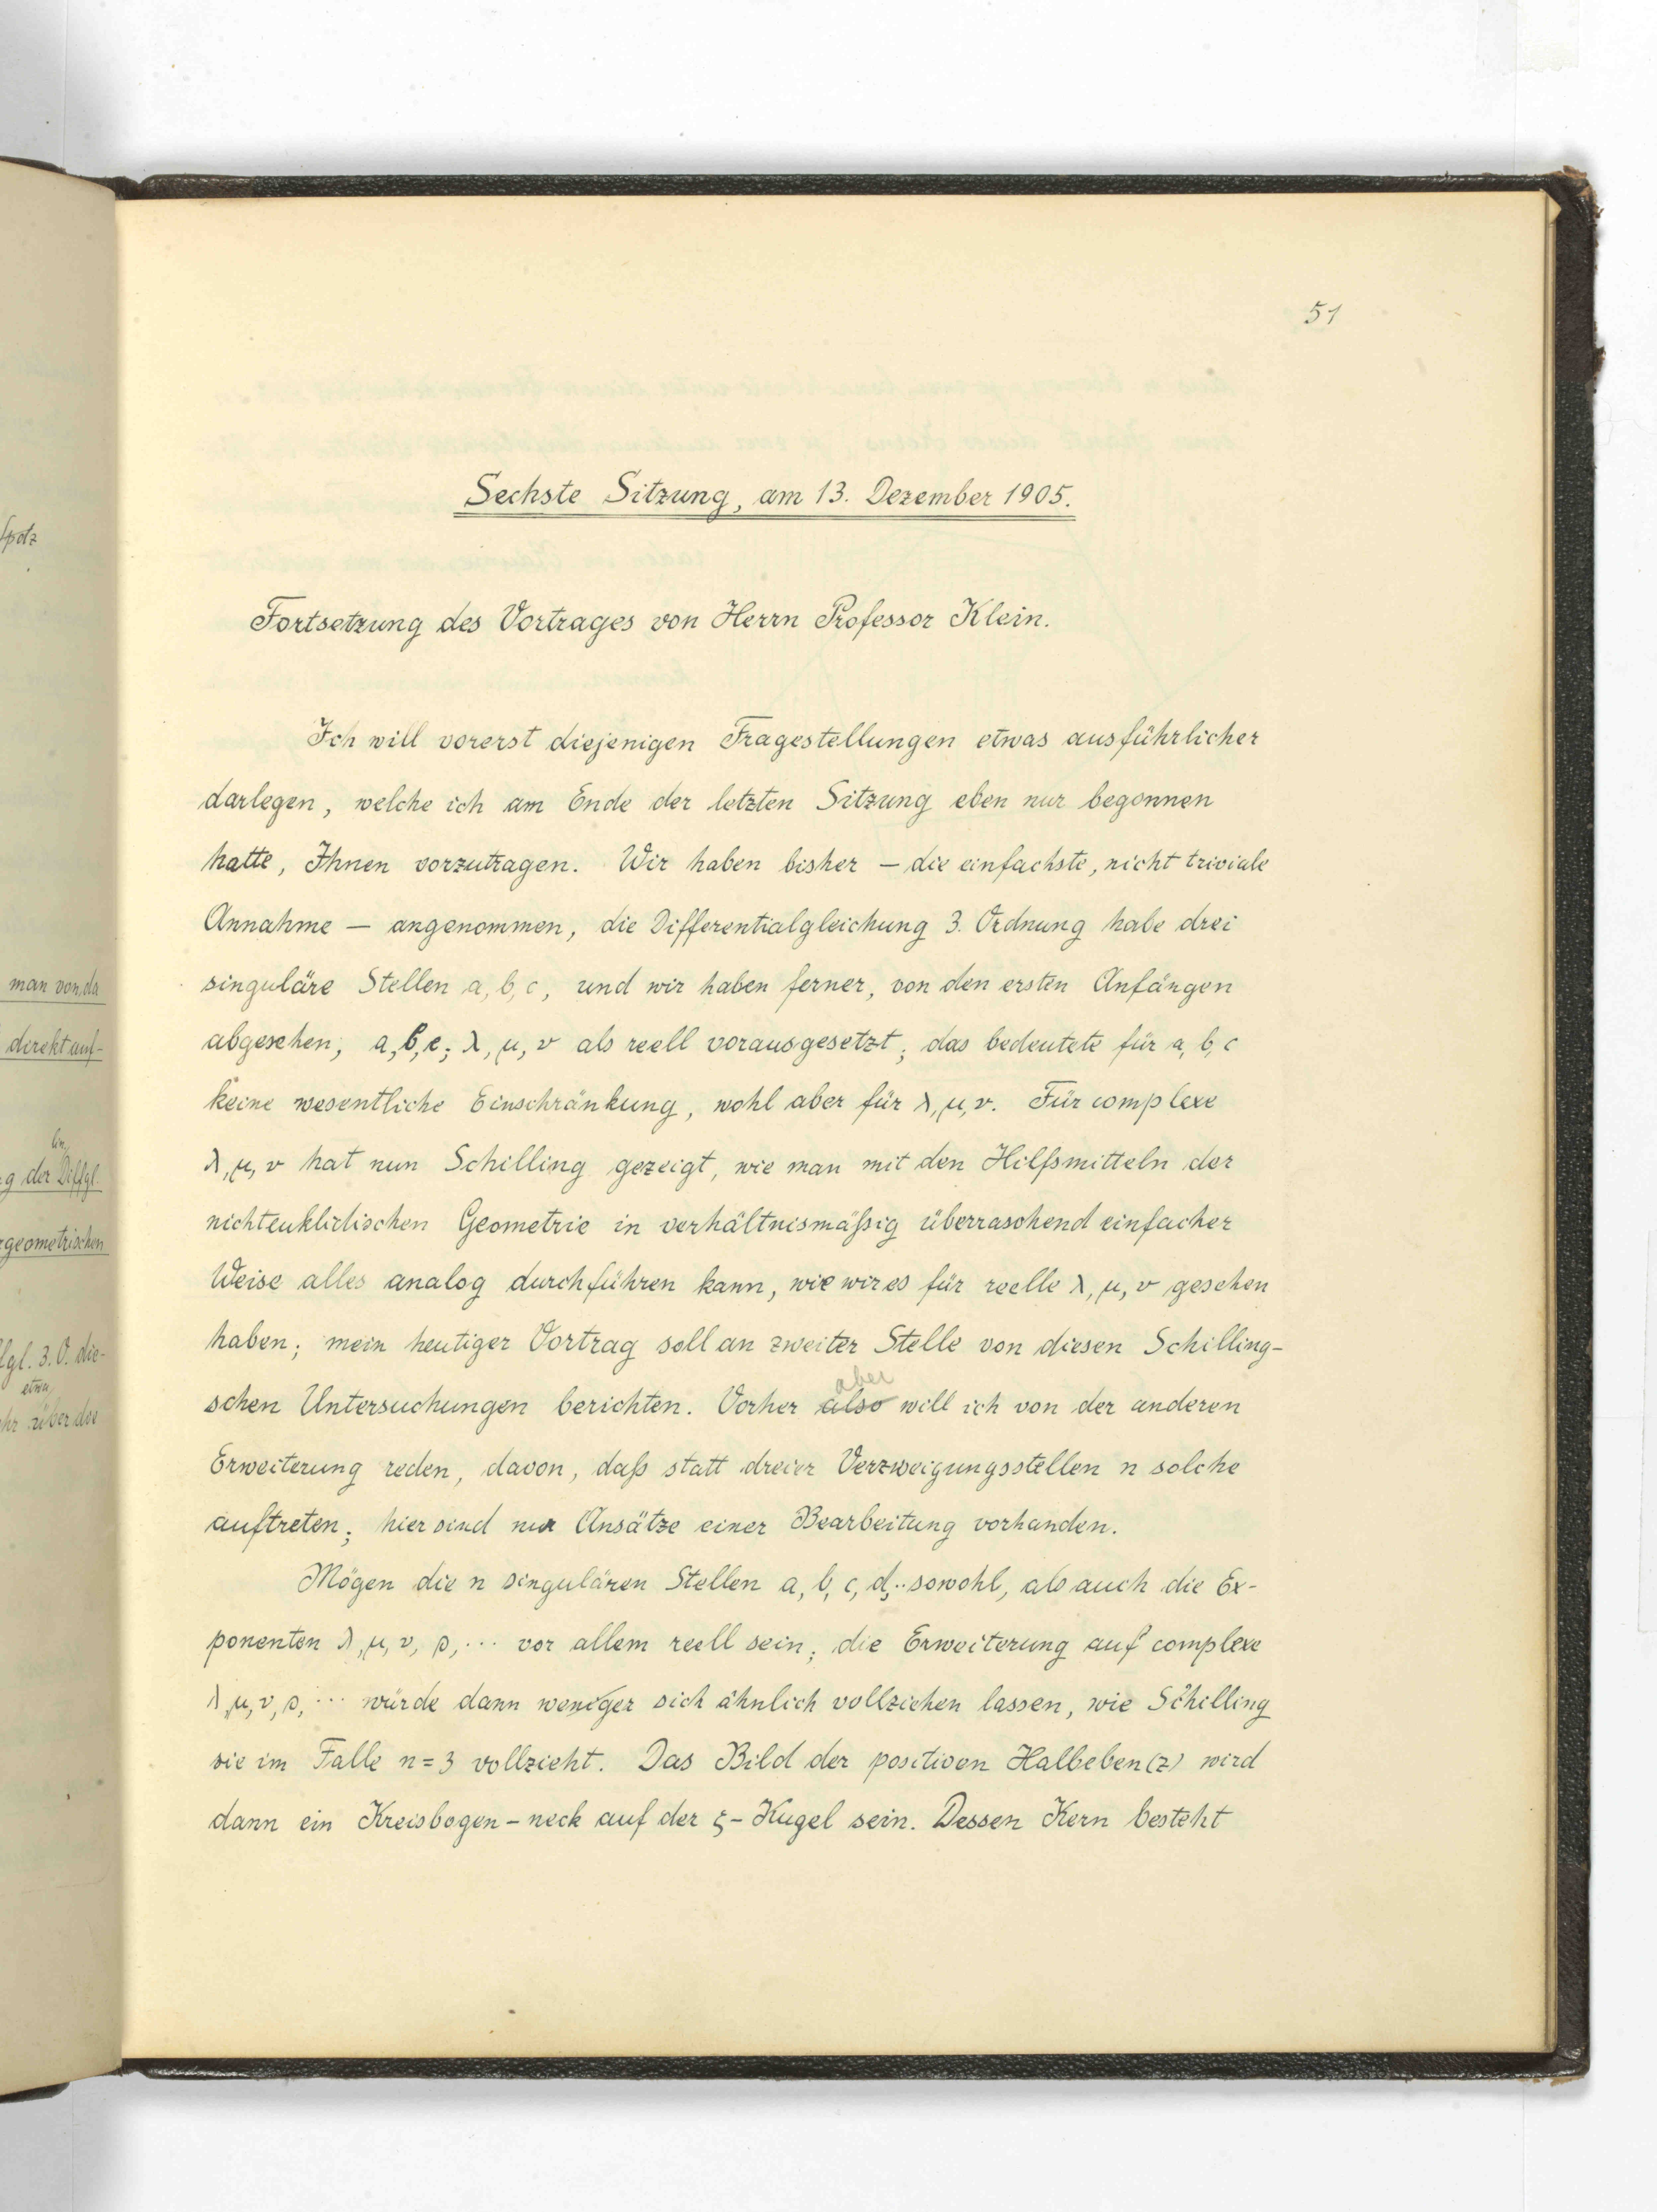 Spotz
man von da
direkt auf-
lin.
g der Diffgl.
rgeometrischen
lgl. 3. O. die-
etwa
hr über die
51
Sechste Sitzung, am 13. Dezember 1905.
Fortsetzung des Vortrages von Herrn Professor Klein.
Ich will vorerst diejenigen Fragestellungen etwas ausführlicher
darlegen, welche ich am Ende der letzten Sitzung eben nur begonnen
hatte, Ihnen vorzutragen. Wir haben bisher – die einfachste, nicht triviale
Annahme – angenommen, die Differentialgleichung 3. Ordnung habe drei
singuläre Stellen a, b, c, und wir haben ferner, von den ersten Anfängen
abgesehen, a, b, c; λ, μ, ν als reell vorausgesetzt; das bedeutete für a, b, c
keine wesentliche Einschränkung, wohl aber für λ, μ, ν. Für complexe
λ, μ, ν hat nun Schilling gezeigt, wie man mit den Hilfsmitteln der
nichteuklidischen Geometrie in verhältnismäßig überraschend einfacher
Weise alles analog durchführen kann, wie wir es für reelle λ, μ, ν gesehen
haben; mein heutiger Vortrag soll an zweiter Stelle von diesen Schilling-
aber
schen Untersuchungen berichten. Vorher also will ich von der anderen
Erweiterung reden, davon, daß statt dreier Verzweigungsstellen n solche
auftreten; hier sind nur Ansätze einer Bearbeitung vorhanden.
Mögen die n singulären Stellen a, b, c, d,.. sowohl, als auch die Ex-
ponenten λ, μ, ν, ρ, ... vor allem reell sein; die Erweiterung auf complexe
λ, μ, ν, ρ, ... würde dann weniger sich ähnlich vollziehen lassen, wie Schilling
sie im Falle n = 3 vollzieht. Das Bild der positiven Halbeben (z) wird
dann ein Kreisbogen-neck auf der ζ-Kugel sein. Dessen Kern besteht